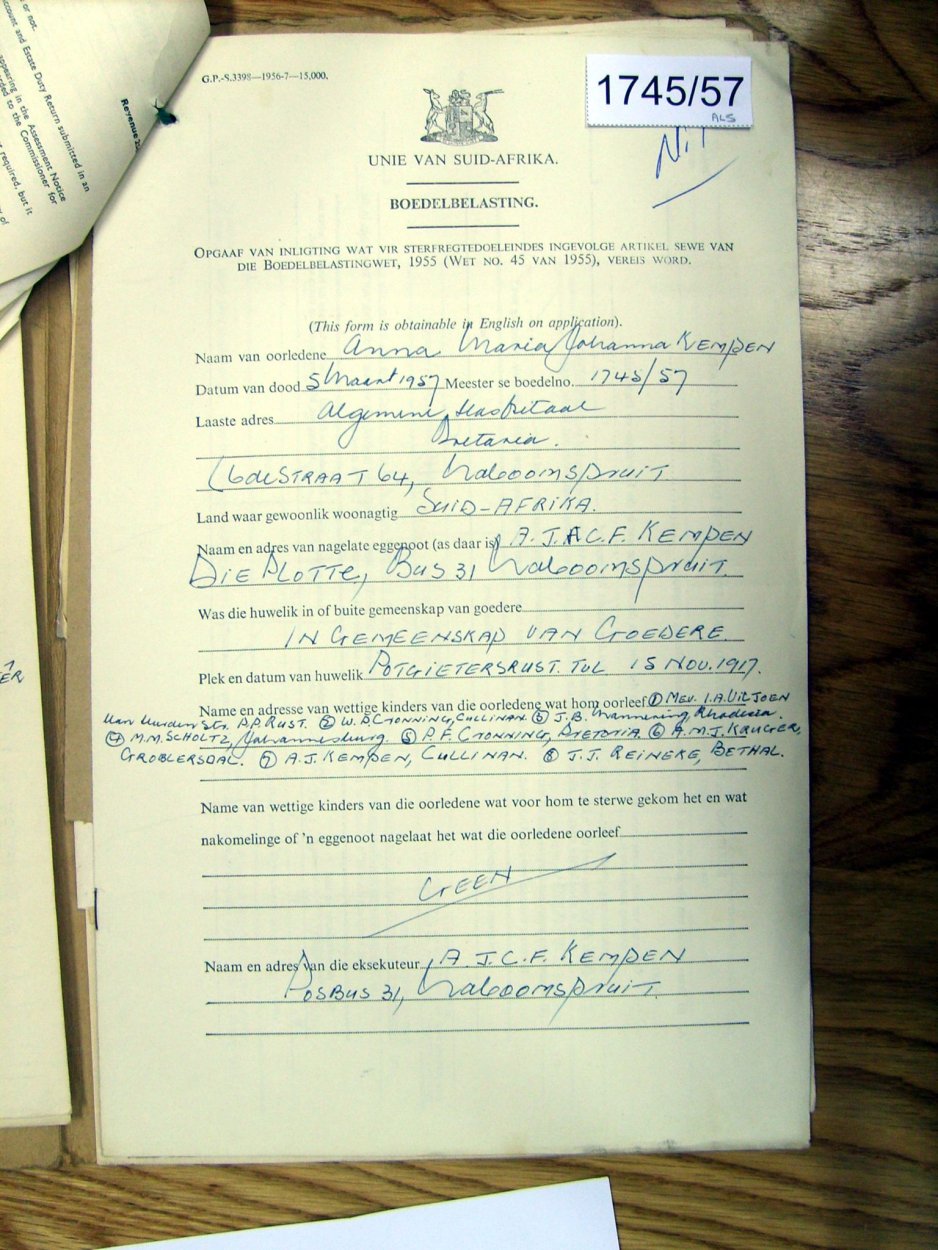 or not.
account and Estate Duty Return submitted in an
appearing in the Assessment Notice
to the Commissioner for
required, but it
of
Revenue
ER
G.P.-S.3398—1956-7—15,000.
1745/57
ALS
UNIE VAN SUID-AFRIKA.
BOEDELBELASTING.
OPGAAF VAN INLIGTING WAT VIR STERFREGTEDOELEINDES INGEVOLGE ARTIKEL SEWE VAN
DIE BOEDELBELASTINGWET, 1955 (WET NO. 45 VAN 1955), VEREIS WORD.
(This form is obtainable in English on application).
Naam van oorledene Anna Maria Johanna KEMPEN
Datum van dood 5 Maart 1957 Meester se boedelno. 1745/57
Laaste adres Algemene Hospitaal
Pretoria.
6de STRAAT 64, Naboomspruit
Land waar gewoonlik woonagtig SUID-AFRIKA.
Naam en adres van nagelate eggenoot (as daar is) A.J.C.F. KEMPEN
DIE PLOTTE, BUS 31 Naboomspruit.
Was die huwelik in of buite gemeenskap van goedere
IN GEMEENSKAP VAN GOEDERE.
Plek en datum van huwelik POTGIETERSRUST. TVL 15 NOV. 1917.
Name en adresse van wettige kinders van die oorledene wat hom oorleef ① MEV. I.A. VILJOEN
Str. P.P. RUST. ② W.P. CRONNING, CULLINAN. ③ J.B. Rhodesia.
④ M.M. SCHOLTZ, Johannesburg. ⑤ P.F. CRONNING, PRETORIA. ⑥ A.M.J. KRUGER,
GROBLERSDAL. ⑦ A.J. KEMPEN, CULLINAN. ⑧ J.J. REINEKE, BETHAL.
Name van wettige kinders van die oorledene wat voor hom te sterwe gekom het en wat
nakomelinge of 'n eggenoot nagelaat het wat die oorledene oorleef
GEEN
Naam en adres van die eksekuteur A.J.C.F. KEMPEN
POSBUS 31, Naboomspruit.